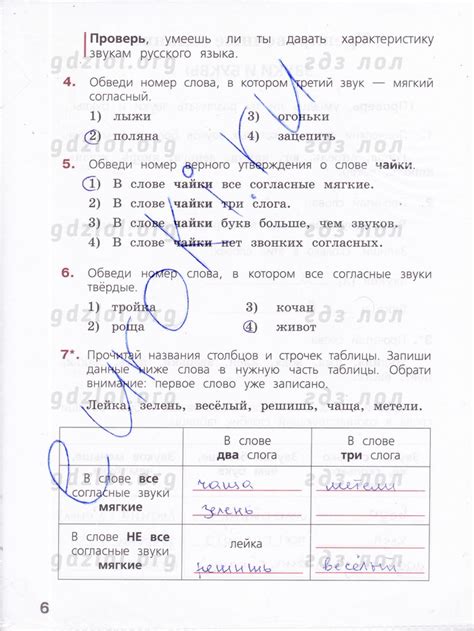 Проверь, умеешь ли ты давать характеристику
звукам русского языка.
4. Обведи номер слова, в котором третий звук — мягкий
согласный.
1) лыжи 3) огоньки
2) поляна 4) зацепить
5. Обведи номер верного утверждения о слове чайки.
1) В слове чайки все согласные мягкие.
2) В слове чайки три слога.
3) В слове чайки букв больше, чем звуков.
4) В слове чайки нет звонких согласных.
6. Обведи номер слова, в котором все согласные звуки
твёрдые.
1) тройка 3) кочан
2) роща 4) живот
7*. Прочитай названия столбцов и строчек таблицы. Запиши
данные ниже слова в нужную часть таблицы. Обрати
внимание: первое слово уже записано.
Лейка, зелень, весёлый, решишь, чаща, метели.
В слове
два слога
В слове
три слога
В слове все
согласные звуки
мягкие
чаща
зелень
метели
В слове НЕ все
согласные звуки
мягкие
лейка
решишь
весёлый
6
gdzlol.org
гдз лол